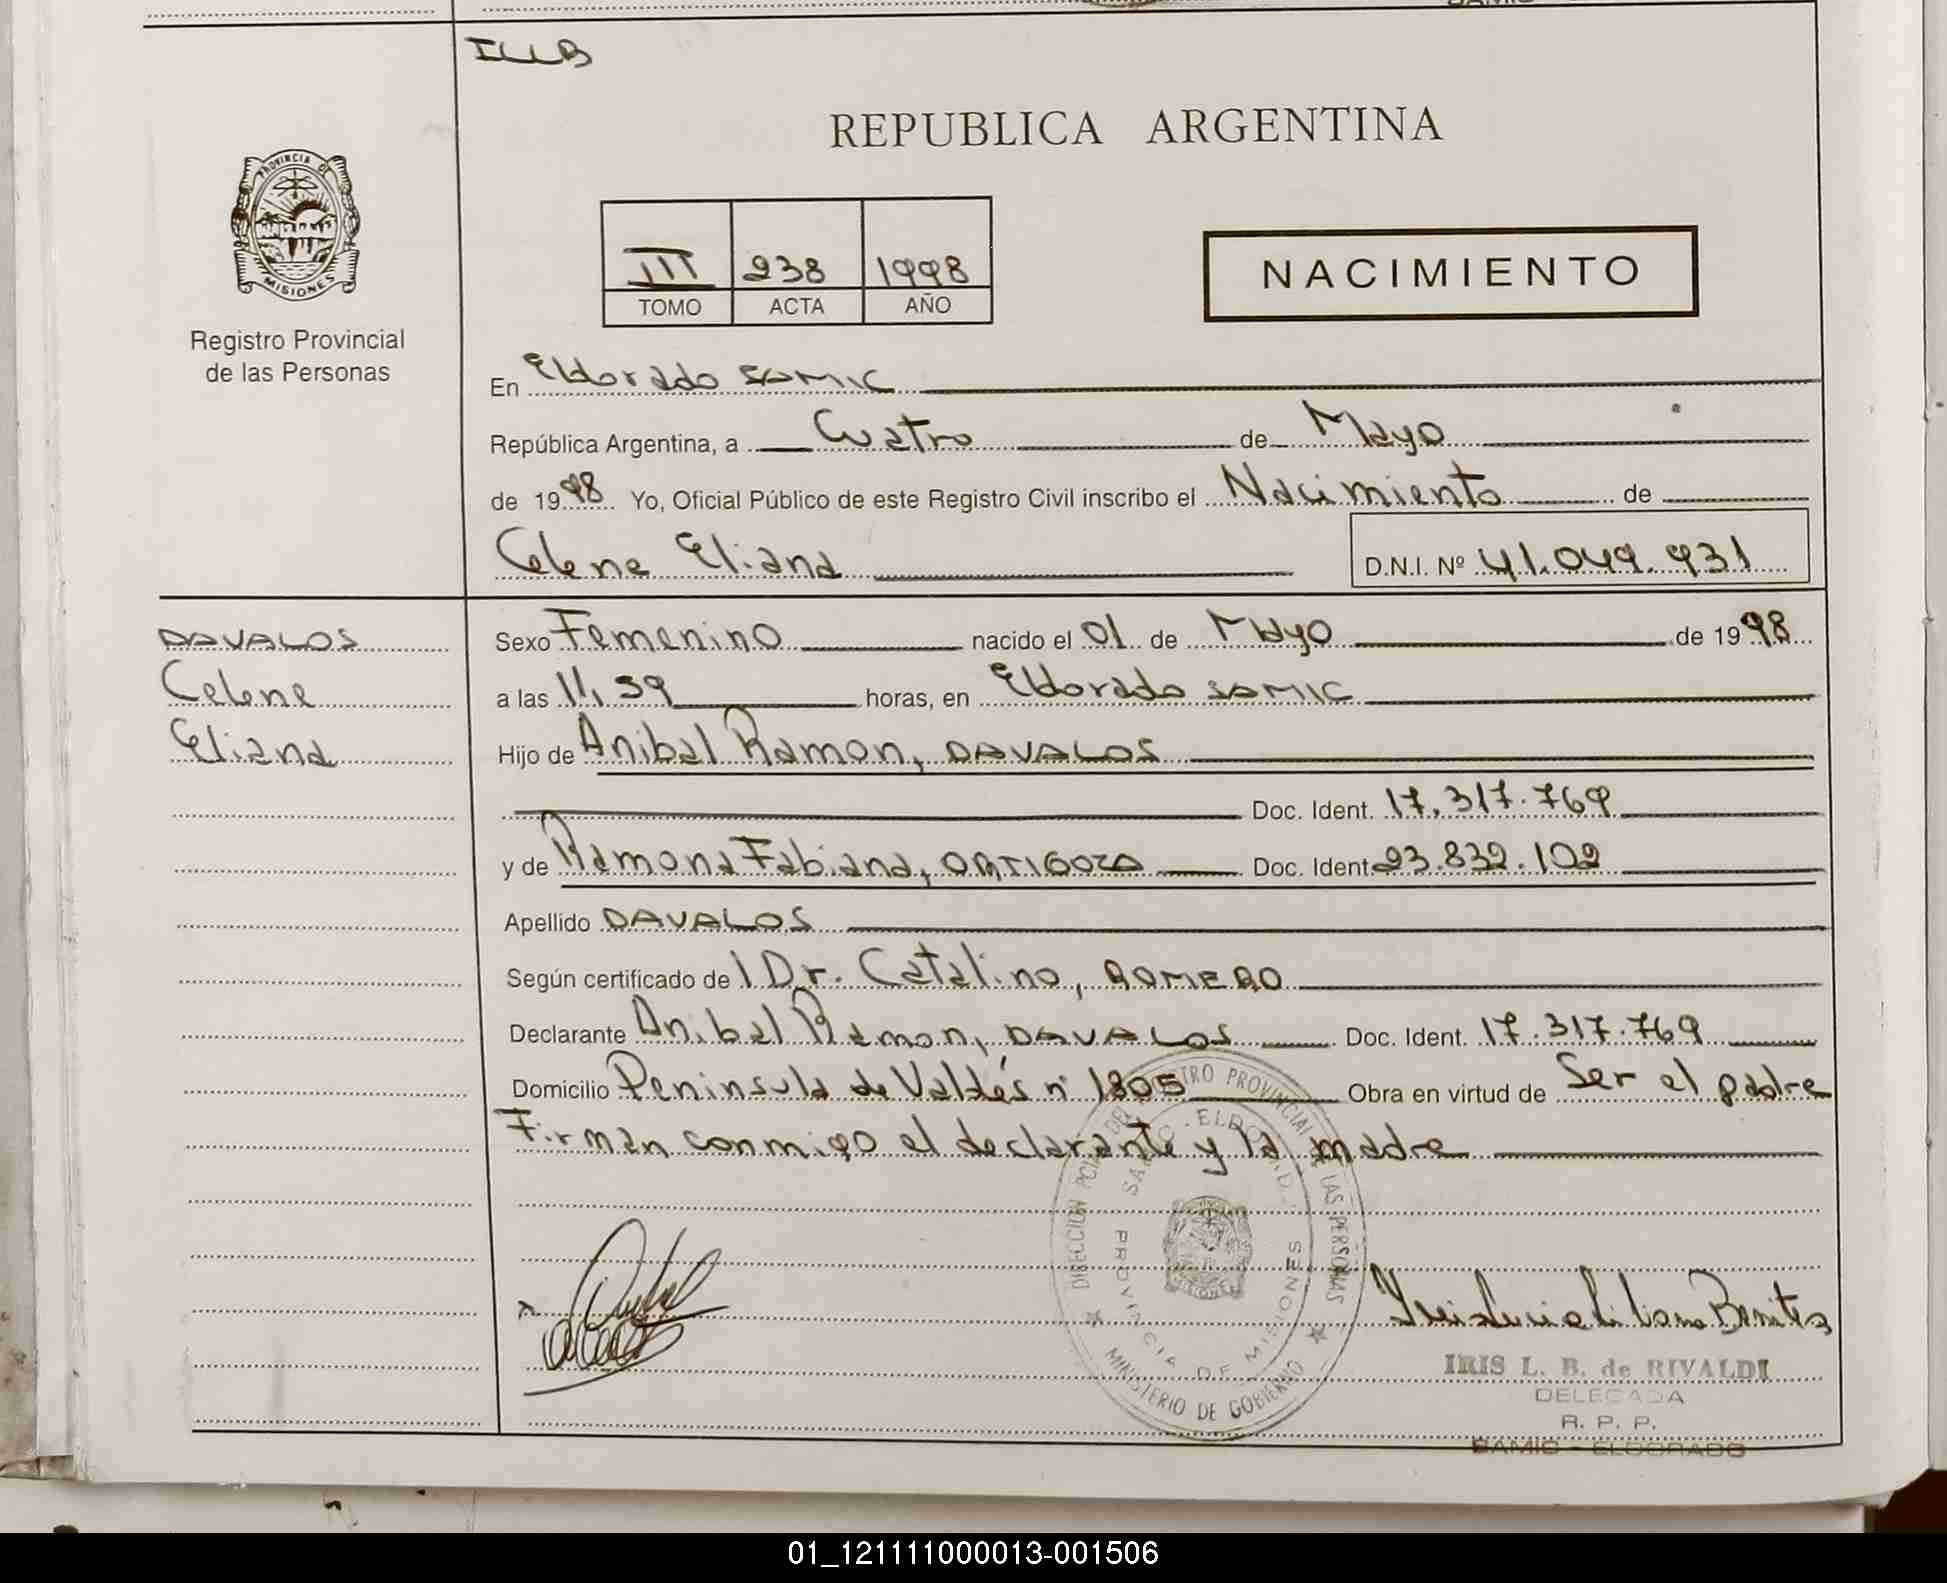 ILLB
REPUBLICA ARGENTINA
PROVINCIA DE
MISIONES
Registro Provincial
de las Personas
III 238 1998
TOMO ACTA AÑO
NACIMIENTO
En Eldorado SAMIC
República Argentina, a Cuatro de Mayo
de 1998 Yo, Oficial Público de este Registro Civil inscribo el Nacimiento de
Celene Eliana D.N.I. Nº 41.049.931
DAVALOS
Celene
Eliana
Sexo Femenino nacido el 01 de Mayo de 1998
a las 11,39 horas, en Eldorado SAMIC
Hijo de Anibal Ramon, DAVALOS
Doc. Ident. 17.317.769
y de Ramona Fabiana, ORTIGOZA Doc. Ident. 23.832.102
Apellido DAVALOS
Según certificado de l Dr. Catalino, ROMERO
Declarante Anibal Ramon, DAVALOS Doc. Ident. 17.317.769
Domicilio Peninsula de Valdés nº 1805 Obra en virtud de Ser el padre
Firman conmigo el declarante y la madre
PROVINCIA DE MISIONES
MINISTERIO DE GOBIERNO
IRIS L. B. de RIVALDI
DELEGADA
R. P. P.
SAMIC - ELDORADO
01_121111000013-001506